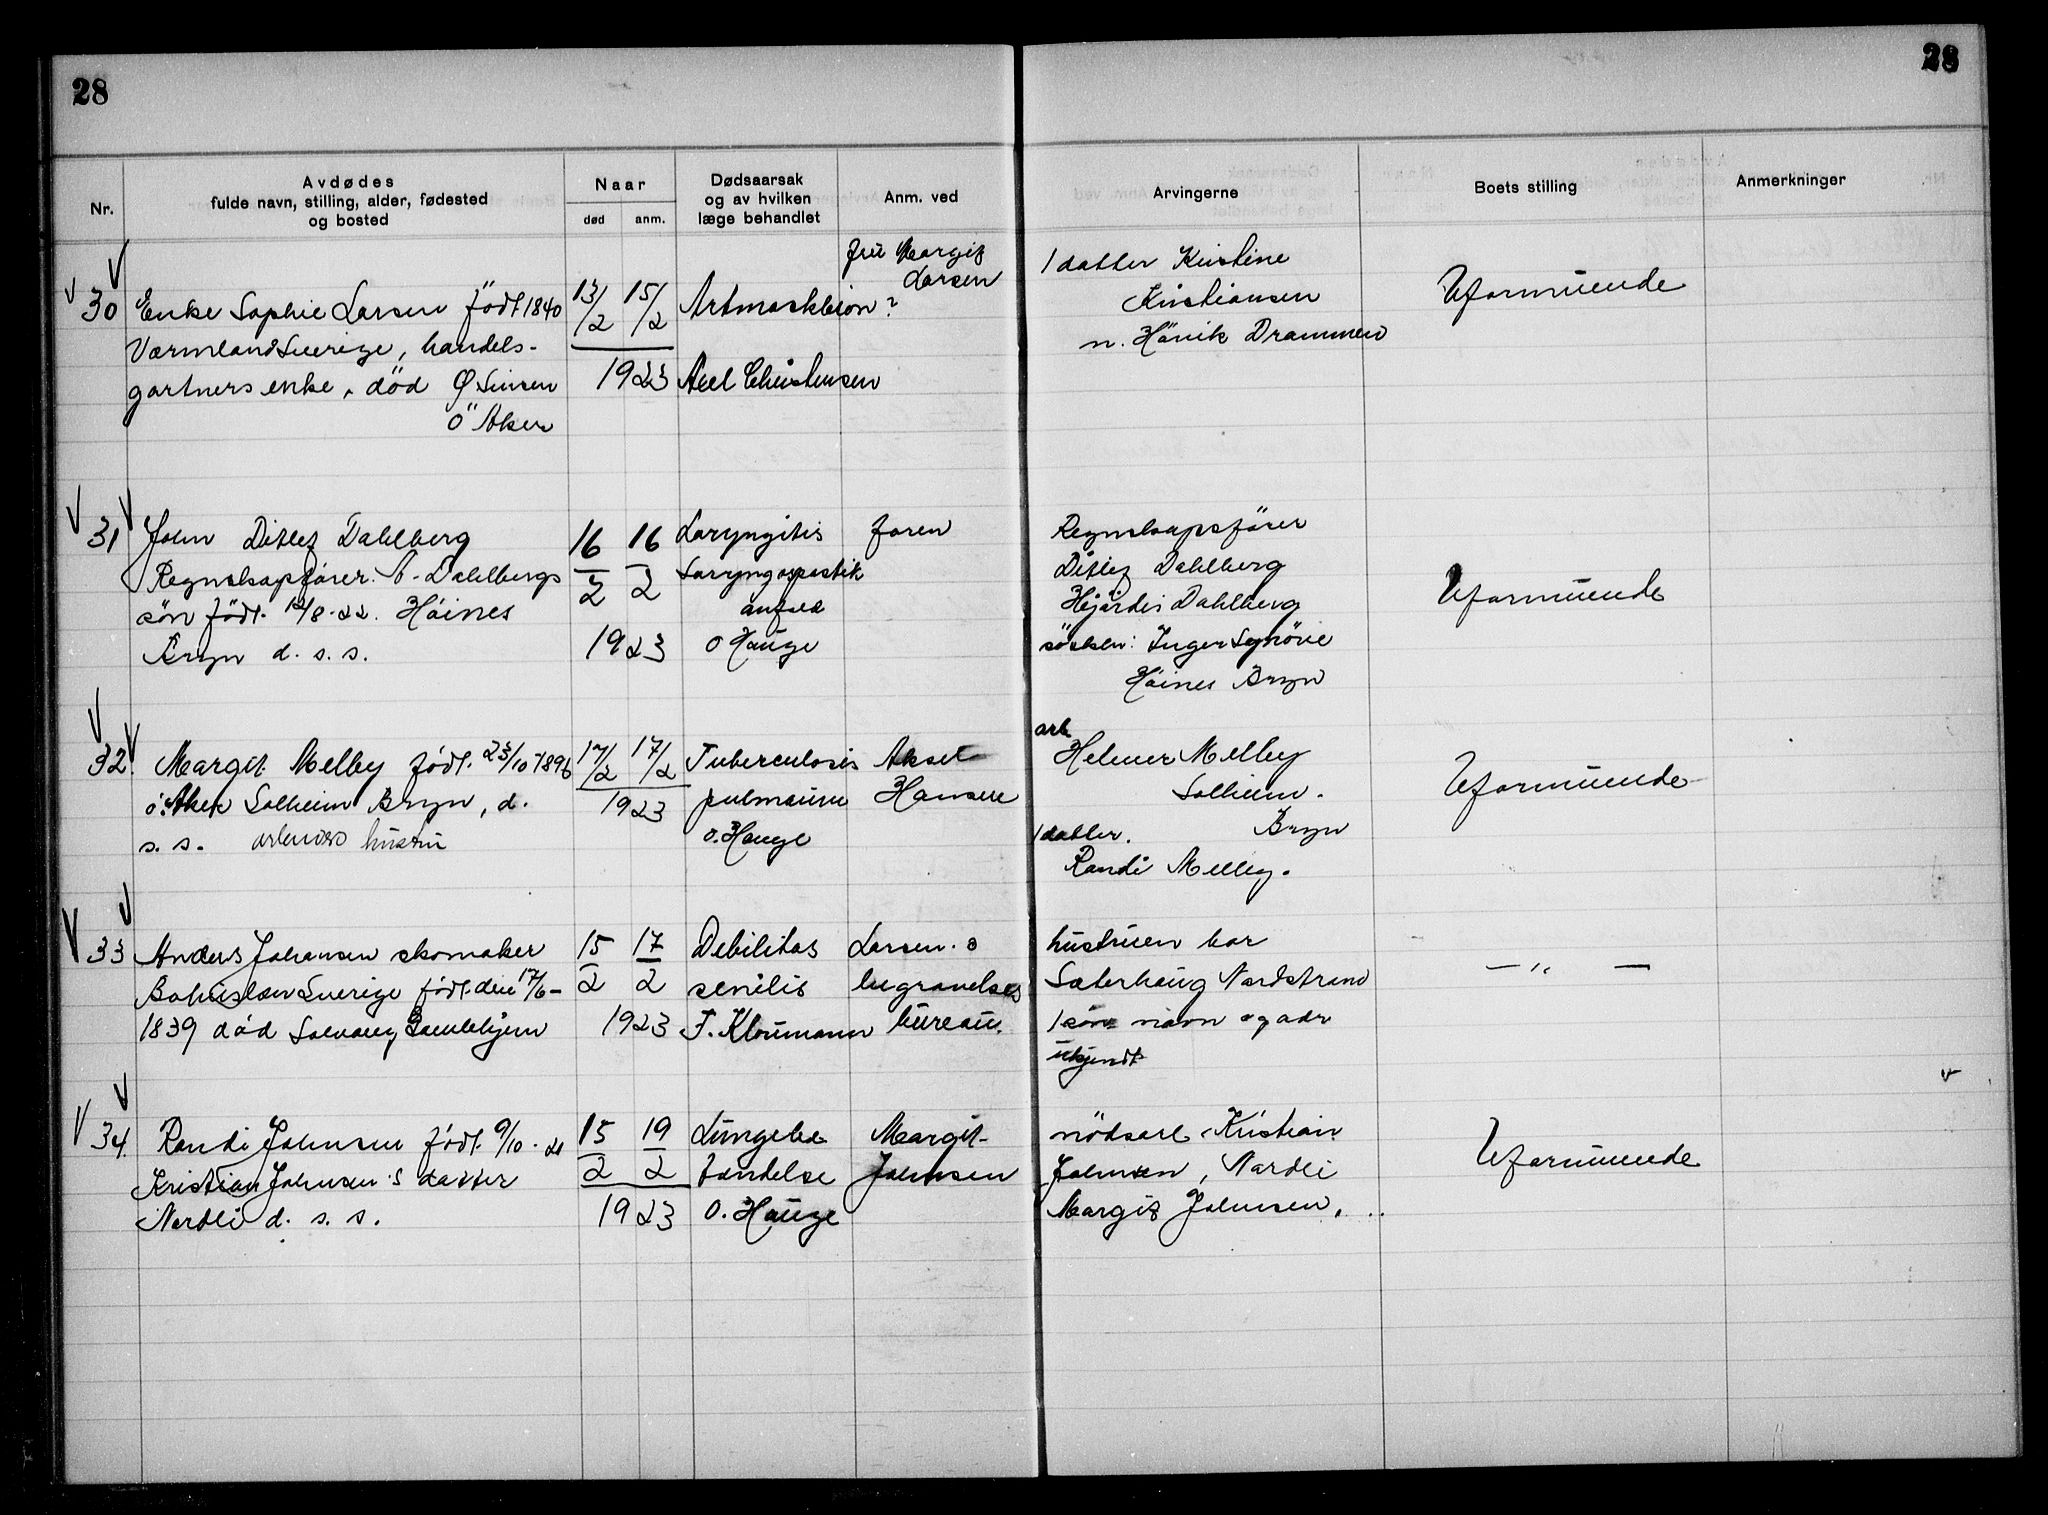 28
28
Nr.
Avdødes
fulde navn, stilling, alder, fødested
og bosted
Naar
død anm.
Dødsaarsak
og av hvilken
læge behandlet
Anm. ved
Arvingerne
Boets stilling
Anmerkninger
30
Enke Sophie Larsen født 1840
Värmland Sverige, handels-
gartners enke, död Ø. Sinsen
ö Aker
13/2 15/2
1923
Axel Christensen
fru Margit
Larsen
1 datter Kristine
Kristiansen
n. Hönik Drammen
Uformuende
31
John Ditlef Dahlberg
Regnskapsfører Dahlbergs
sön født 12/8-22. Höines
Bryn d. s. s.
16/2 16/2
1923
Laryngitis
anfald
O Hauge
faren
Regnskapsfører
Ditlef Dahlberg
Hjördis Dahlberg
söskn: Inger Synöve
Höines Bryn
Uformuende
32.
Margit Melby født. 23/10 1896
ö. Aker Solheim Bryn, d.
s. s. arbeiders hustru
17/2 17/2
1923
Tuberculosis
pulmonum
O. Hauge
Aksel
Hansen
arb
Helmer Melby
Solheim.
Bryn
1 datter.
Randi Melby.
Uformuende
33
Anders Johansen skomaker
Bohuslän Sverige født den 17/6-
1839 død Solvang Gamlehjem
15/2 17/2
1923
Debilitas
senilis
F. Kloumann
Larsen.s
begravelses
bureau.
hustruen bor
Sæterhaug Nordstrand
1 sön navn og adr
ukjendt
— " —
34.
Randi Johnsen født 9/10-21
Kristian Johnsen's datter
Nordli d. s. s.
15/2 19/2
1923
Lungebe
tændelse
O. Hauge
Margit
Johnsen
nödsarb. Kristian
Johnsen, Nordli
Margit Johnsen,
Uformuende